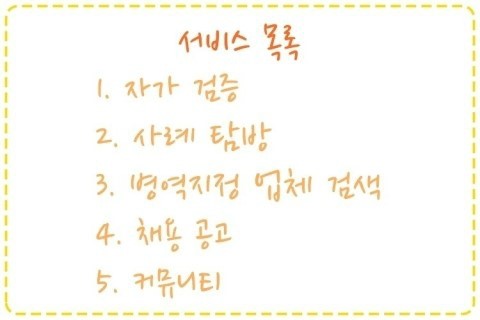 서비스 목록
1. 자가 검증
2. 사례 탐방
3. 병역지정 업체 검색
4. 채용 공고
5. 커뮤니티